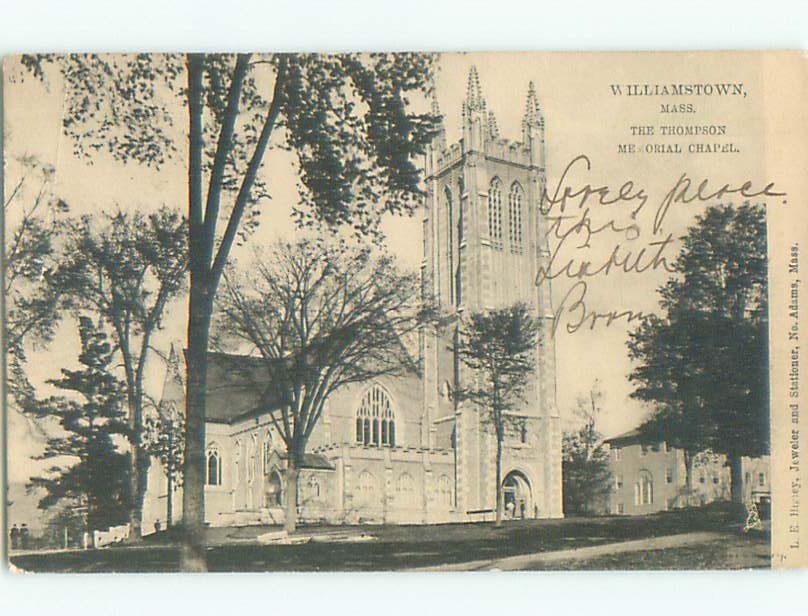 WILLIAMSTOWN,
MASS.
THE THOMPSON
MEMORIAL CHAPEL.
Lovely place
this
Lizabeth
Brown
L. E. Jeweler and Stationer, No. Adams, Mass.